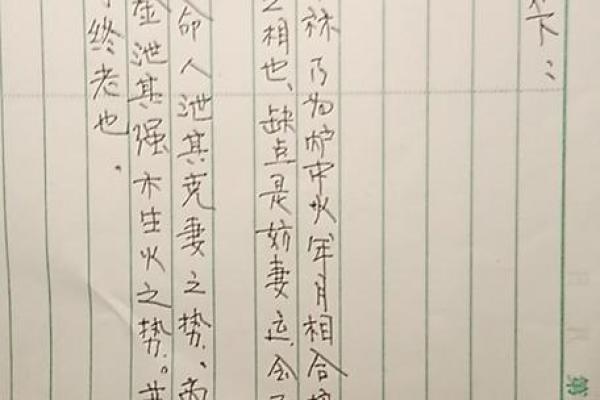 下：
乃为炉中火年月相合
之相也、缺点是妨妻运、会
命人泄其克妻之势、
金泄其强木生火之势。
终老也.
第